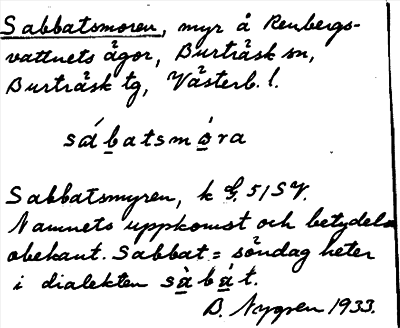 Sabbatsmoren, myr å Renbergs-
vattnets ägor, Burträsk sn,
Burträsk tg, Västerb. l.
sábatsmóra
Sabbatsmyren, k G. 51 SV.
Namnets uppkomst och betydels
obekant. Sabbat = söndag heter
i dialekten sàbát.
B. Nygren 1933.